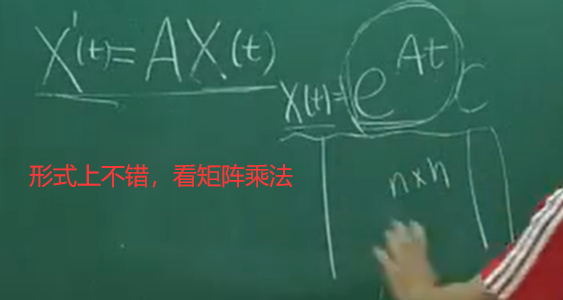 X'(t)=AX(t)
X(t)=e^{At}C
形式上不错，看矩阵乘法
n×n